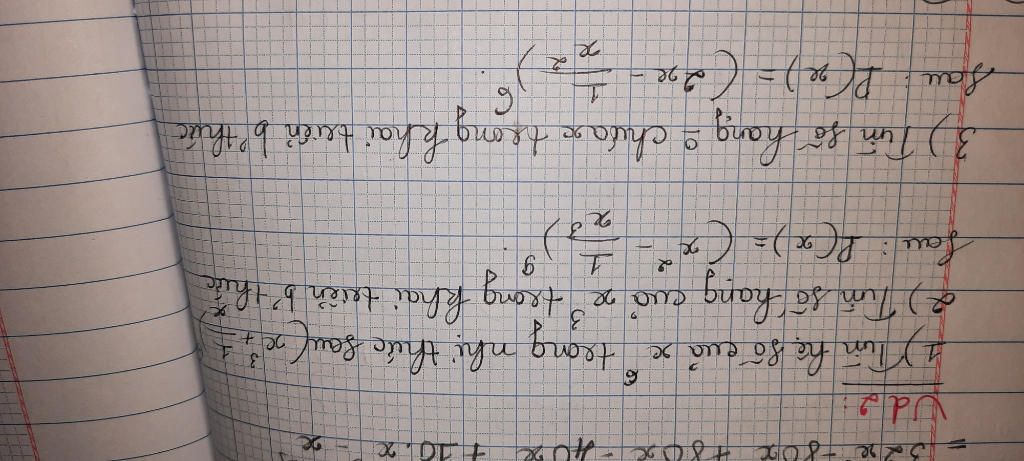 = 32x - 80x + 80x - 40x + 10.x - x
Vd 2:
1) Tìm hệ số của x⁶ trong nhị thức sau (x³ + 1/x)
2) Tìm số hạng của x³ trong khai triển b' thức
sau: P(x) = (x² - 1/x³)⁹.
3) Tìm số hạng ko chứa x trong khai triển b' thức
sau: P(x) = (2x - 1/x²)⁶.